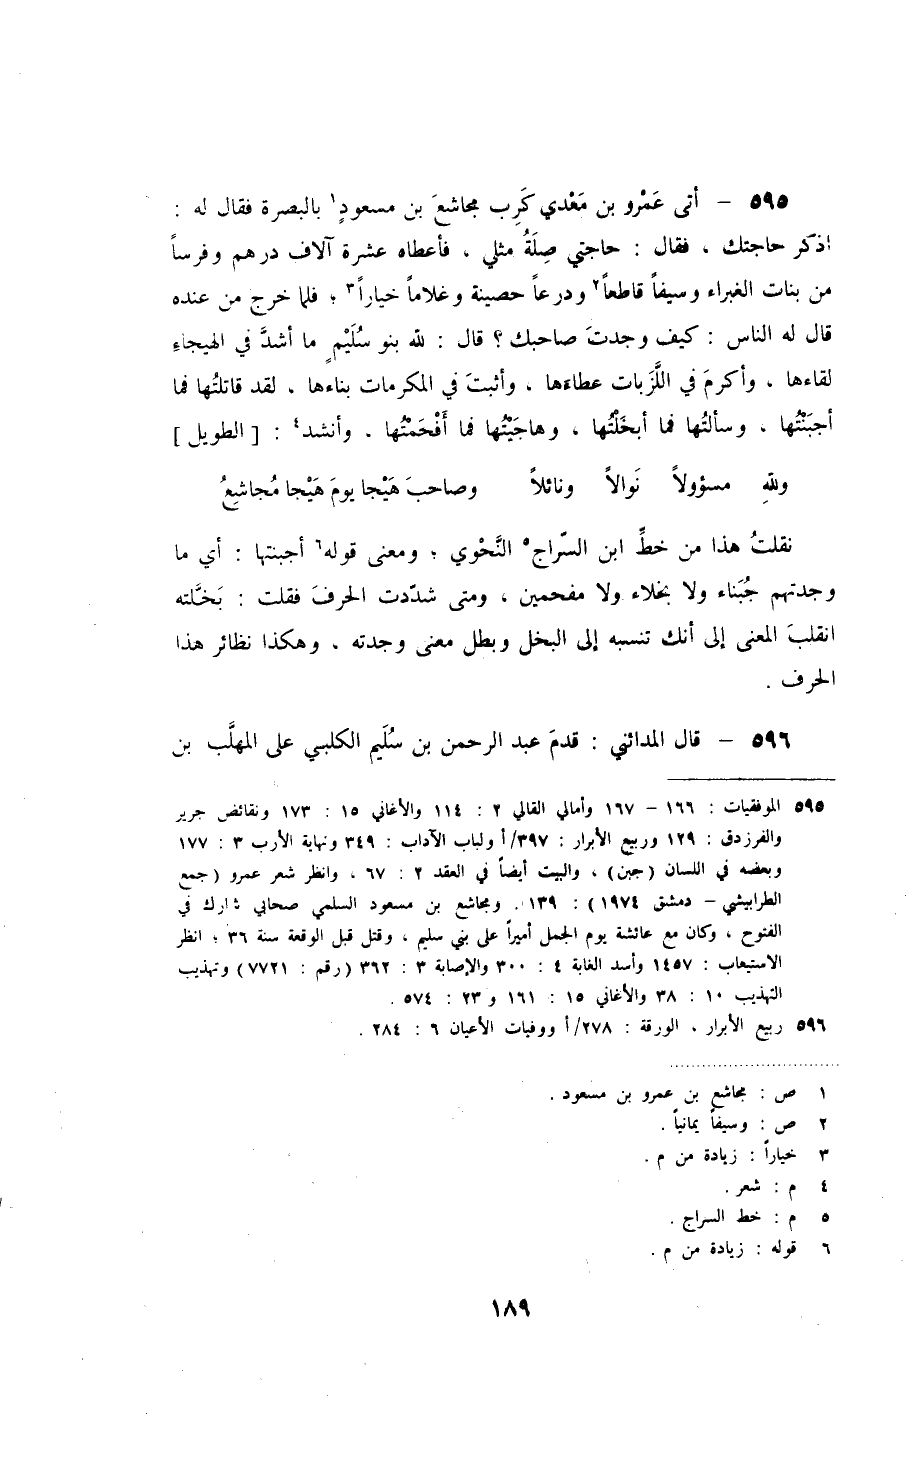 ٥٩٥ – أتى عَمْرو بن مَعْدي كَرِب مجاشعَ بن مسعودٍ١ بالبصرة فقال له :
اذكر حاجتك ، فقال : حاجتي صِلَةُ مثلي ، فأعطاه عشرة آلاف درهم وفرساً
من بنات الغبراء وسيفاً قاطعاً٢ ودرعاً حصينة وغلاماً خياراً٣ ؛ فلما خرج من عنده
قال له الناس : كيف وجدتَ صاحبك ؟ قال : لله بنو سُلَيْمٍ ما أشدَّ في الهيجاءِ
لقاءها ، وأكرمَ في اللَّزَبات عطاءَها ، وأثبتَ في المكرمات بناءها ، لقد قاتلتُها فما
أجبَنْتُها ، وسألتُها فما أبخَلْتُها ، وهاجَيْتُها فما أَفْحَمْتُها ، وأنشد٤ : [ الطويل ]
وللهِ مسؤولاً نَوالاً ونائلاً وصاحبَ هَيْجا يومَ هَيْجا مُجاشِعُ
نقلتُ هذا من خطِّ ابن السّراج٥ النَّحْوي ؛ ومعنى قوله٦ أجبنتها : أي ما
وجدتهم جُبَناء ولا بخلاء ولا مفحمين ، ومتى شدّدت الحرفَ فقلت : بَخَّلته
انقلبَ المعنى إلى أنك تنسبه إلى البخل وبطل معنى وجدته ، وهكذا نظائر هذا
الحرف .
٥٩٦ – قال المدائني : قدمَ عبد الرحمن بن سُلَيم الكلبي على المهلَّب بن
٥٩٥ الموفقيات : ١٦٦ – ١٦٧ وأمالي القالي ٢ : ١١٤ والأغاني ١٥ : ١٧٣ ونقائض جرير
والفرزدق : ١٢٩ وربيع الأبرار : ٣٩٧/أ ولباب الآداب : ٣٤٩ ونهاية الأرب ٣ : ١٧٧
وبعضه في اللسان (جبن) ، والبيت أيضاً في العقد ٢ : ٦٧ ، وانظر شعر عمرو (جمع
الطرابيشي – دمشق ١٩٧٤) : ١٣٩ . ومجاشع بن مسعود السلمي صحابي شارك في
الفتوح ، وكان مع عائشة يوم الجمل أميراً على بني سليم ، وقتل قبل الوقعة سنة ٣٦ ؛ انظر
الاستيعاب : ١٤٥٧ وأسد الغابة ٤ : ٣٠٠ والإصابة ٣ : ٣٦٢ (رقم : ٧٧٢١) وتهذيب
التهذيب ١٠ : ٣٨ والأغاني ١٥ : ١٦١ و ٢٣ : ٥٧٤ .
٥٩٦ ربيع الأبرار ، الورقة : ٢٧٨/أ ووفيات الأعيان ٦ : ٢٨٤ .
١ ص : مجاشع بن عمرو بن مسعود .
٢ ص : وسيفاً يمانياً .
٣ خياراً : زيادة من م .
٤ م : شعر .
٥ م : خط السراج .
٦ قوله : زيادة من م .
١٨٩